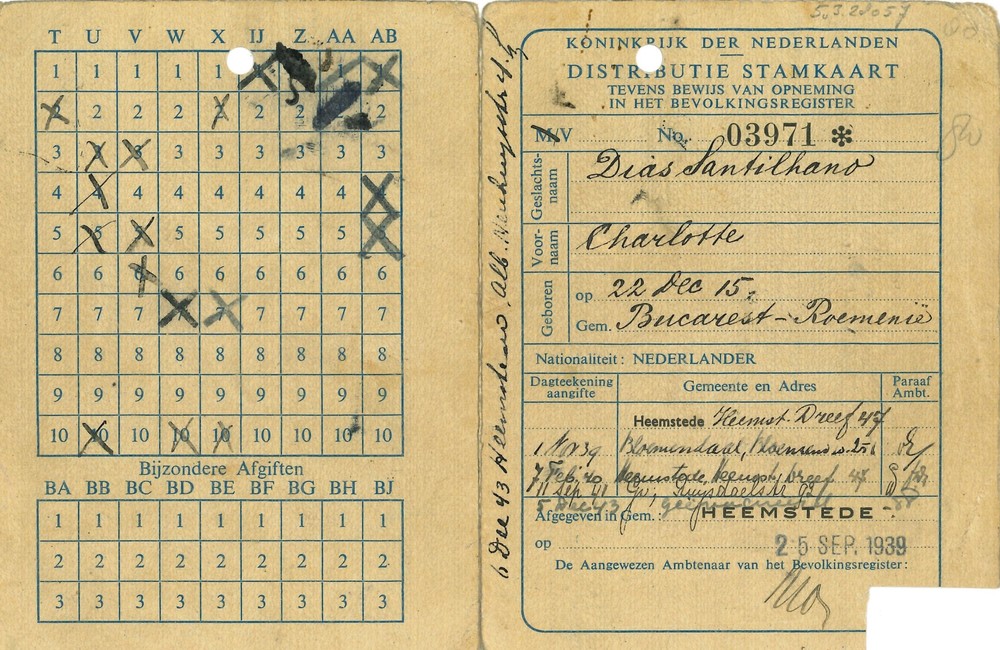 T U V W X IJ Z AA AB
1 1 1 1 1 1
2 2 2 2 2 2 2
3 3 3 3 3 3 3 3 3
4 4 4 4 4 4 4 4 4
5 5 5 5 5 5 5 5 5
6 6 6 6 6 6 6 6 6
7 7 7 7 7 7 7 7 7
8 8 8 8 8 8 8 8 8
9 9 9 9 9 9 9 9 9
10 10 10 10 10 10 10 10 10
Bijzondere Afgiften
BA BB BC BD BE BF BG BH BJ
1 1 1 1 1 1 1 1 1
2 2 2 2 2 2 2 2 2
3 3 3 3 3 3 3 3 3
6 Dec 43 Heemstede, Alb.
KONINKRIJK DER NEDERLANDEN
DISTRIBUTIE STAMKAART
TEVENS BEWIJS VAN OPNEMING
IN HET BEVOLKINGSREGISTER
M/V No. 03971 ✻
Geslachtsnaam Dias Santilhano
Voornaam Charlotte
Geboren op 22 Dec 15.
Gem. Bucarest - Roemenië
Nationaliteit: NEDERLANDER
Dagteekening aangifte Gemeente en Adres Paraaf Ambt.
Heemstede Heemst. Dreef 47
1 Nov 39 Bloemendaal, Bloemend.
7 Feb. 40 Heemstede, Heemst. Dreef 47
11 Sep 41 Ruysdaelstr
5 Dec 43
Afgegeven in Gem.: HEEMSTEDE
op 25 SEP. 1939
De Aangewezen Ambtenaar van het Bevolkingsregister: